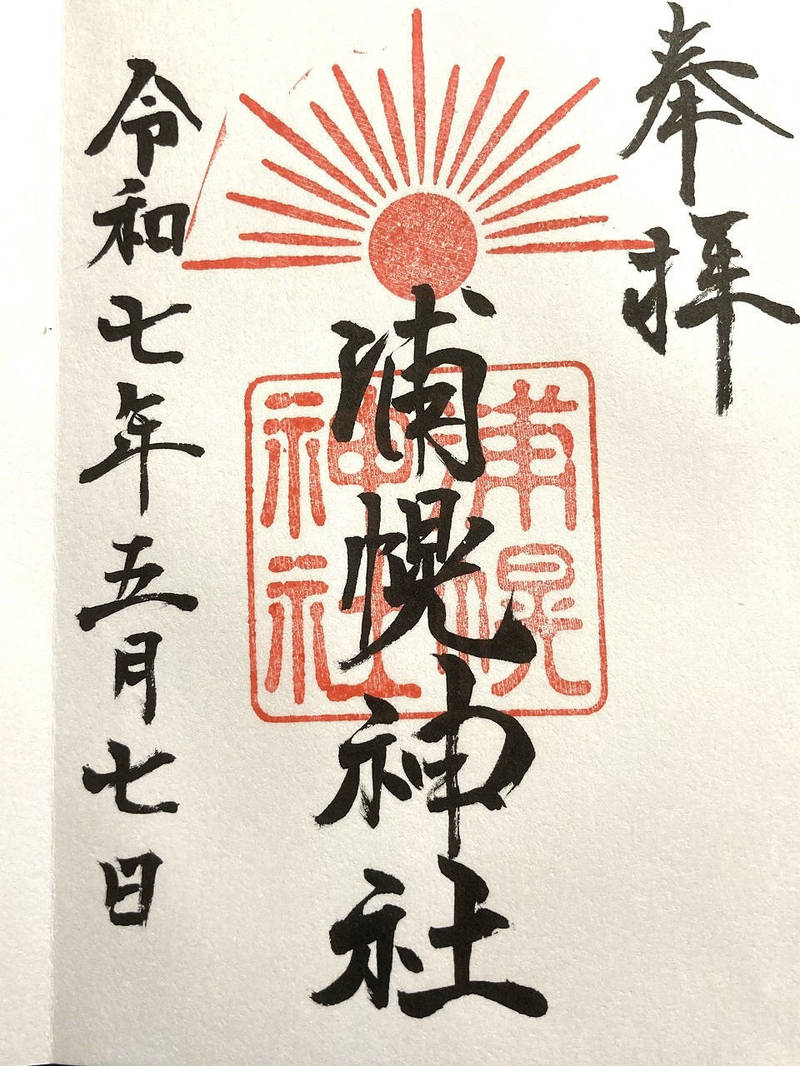 奉拝
浦幌神社
浦幌
神社
令和七年五月七日